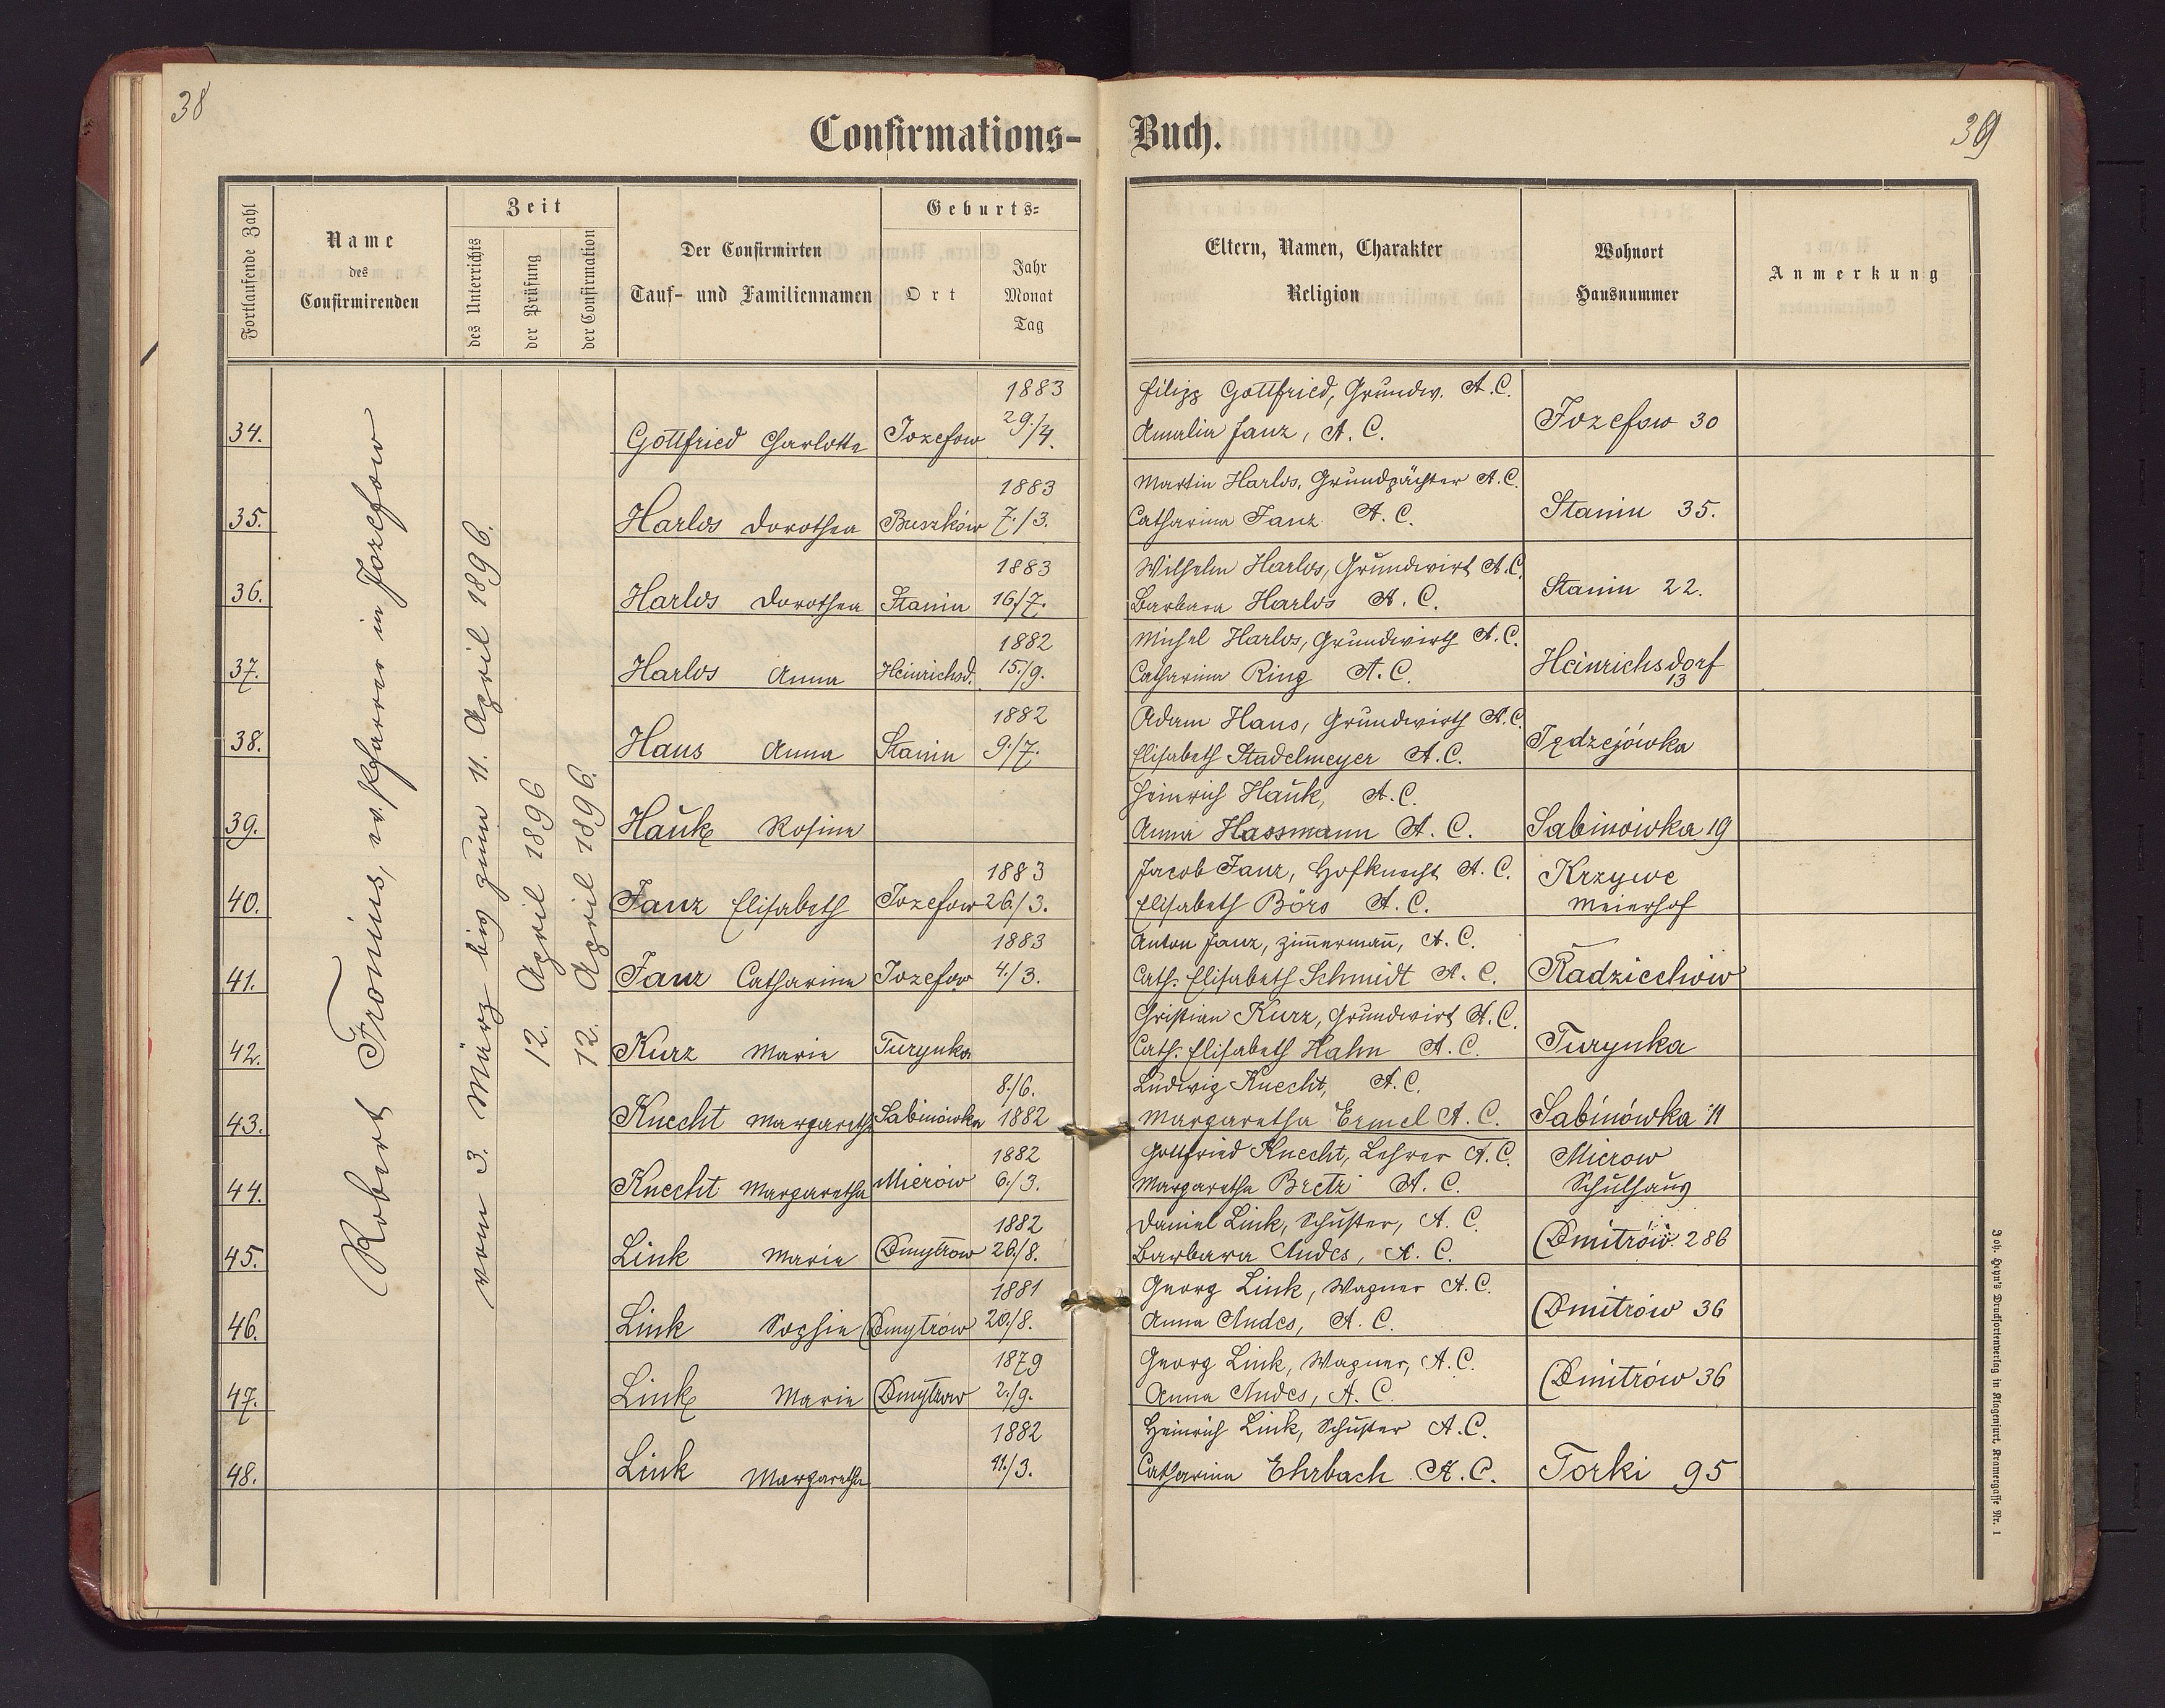 38
Confirmations-
Buch.
39
Fortlaufende Zahl
Name
des
Confirmirenden
Zeit
des Unterrichts
der Prüfung
der Confirmation
Der Confirmirten
Tauf- und Familiennamen
Geburts-
Ort
Jahr
Monat
Tag
Eltern, Namen, Charakter
Religion
Wohnort
Hausnummer
Anmerkung
Robert Fronius, ev. Pfarrer in Jozefow
vom 3. März bis zum 11. April 1896.
12. April 1896
12. April 1896.
1883
Filipp Gottfried, Grundw. A. C.
34. Gottfried Charlotte Jozefow 29./4. Amalia Janz, A. C. Jozefow 30
1883
Martin Harlos, Grundpächter A. C.
35. Harlos Dorothea Buszków 7./3. Catharina Janz A. C. Stanin 35.
1883
Wilhelm Harlos, Grundwirt A. C.
36. Harlos Dorothea Stanin 16./7. Barbara Harlos A. C. Stanin 22.
1882
Michel Harlos, Grundwirth A. C.
37. Harlos Anna Heinrichsd. 15./9. Catharina Ring A. C. Heinrichsdorf 13
1882
Adam Haus, Grundwirth A. C.
38. Haus Anna Stanin 9./7. Elisabeth Stadelmeyer A. C. Jędzejówka
Heinrich Hauk, A. C.
39. Hauk Rosina Anna Hassmann A. C. Sabinówka 19
1883
Jacob Janz, Hofknecht A. C. Krzywe
40. Janz Elisabeth Jozefow 26./3. Elisabeth Börs A. C. Meierhof
1883
Anton Janz, Zim̅erman̅, A. C.
41. Janz Catharina Jozefow 4./3. Cath. Elisabeth Schmidt A. C. Radziechów
Christian Kurz, Grundwirt A. C.
42. Kurz Marie Turynka Cath. Elisabeth Hahn A. C. Turynka
8./6.
Ludwig Knecht, A. C.
43. Knecht Margaretha Sabinówka 1882 Margaretha Ermel A. C. Sabinówka 11
1882
Gottfried Knecht, Lehrer A. C. Mierow
44. Knecht Margaretha Mierów 6./3. Margaretha Bretz A. C. Schulhaus
1882
Daniel Link, Schuster, A. C.
45. Link Marie Dmytrow 26./8. Barbara Andes, A. C. Dmitrów 286
1881
Georg Link, Wagner A. C.
46. Link Sophie Dmytrow 20./8. Anna Andes, A. C. Dmitrów 36
1879
Georg Link, Wagner, A. C.
47. Link Marie Dmytrow 2./9. Anna Andes, A. C. Dmitrów 36
1882
Heinrich Link, Schuster A. C.
48. Link Margaretha 11./3. Catharina Ehrbach A. C. Torki 95
Joh. Heyn's Drucksortenverlag in Klagenfurt, Kramergasse Nr. 1